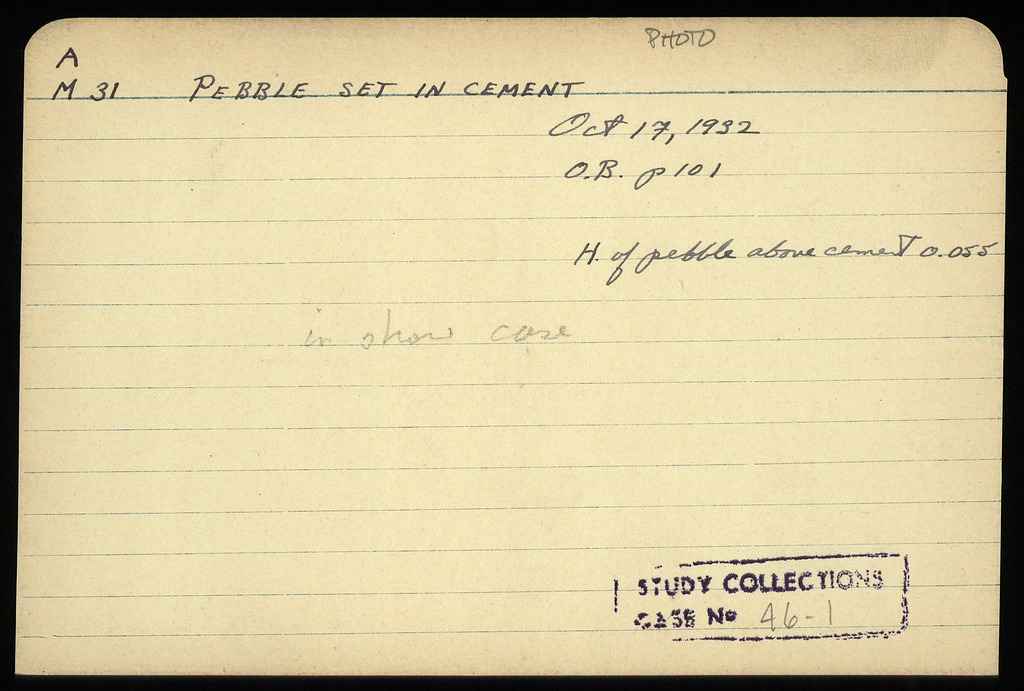 PHOTO
A
M 31 PEBBLE SET IN CEMENT
Oct 17, 1932
O.B. p 101
H. of pebble above cement 0.055
in show case
STUDY COLLECTIONS
CASE No 46-1